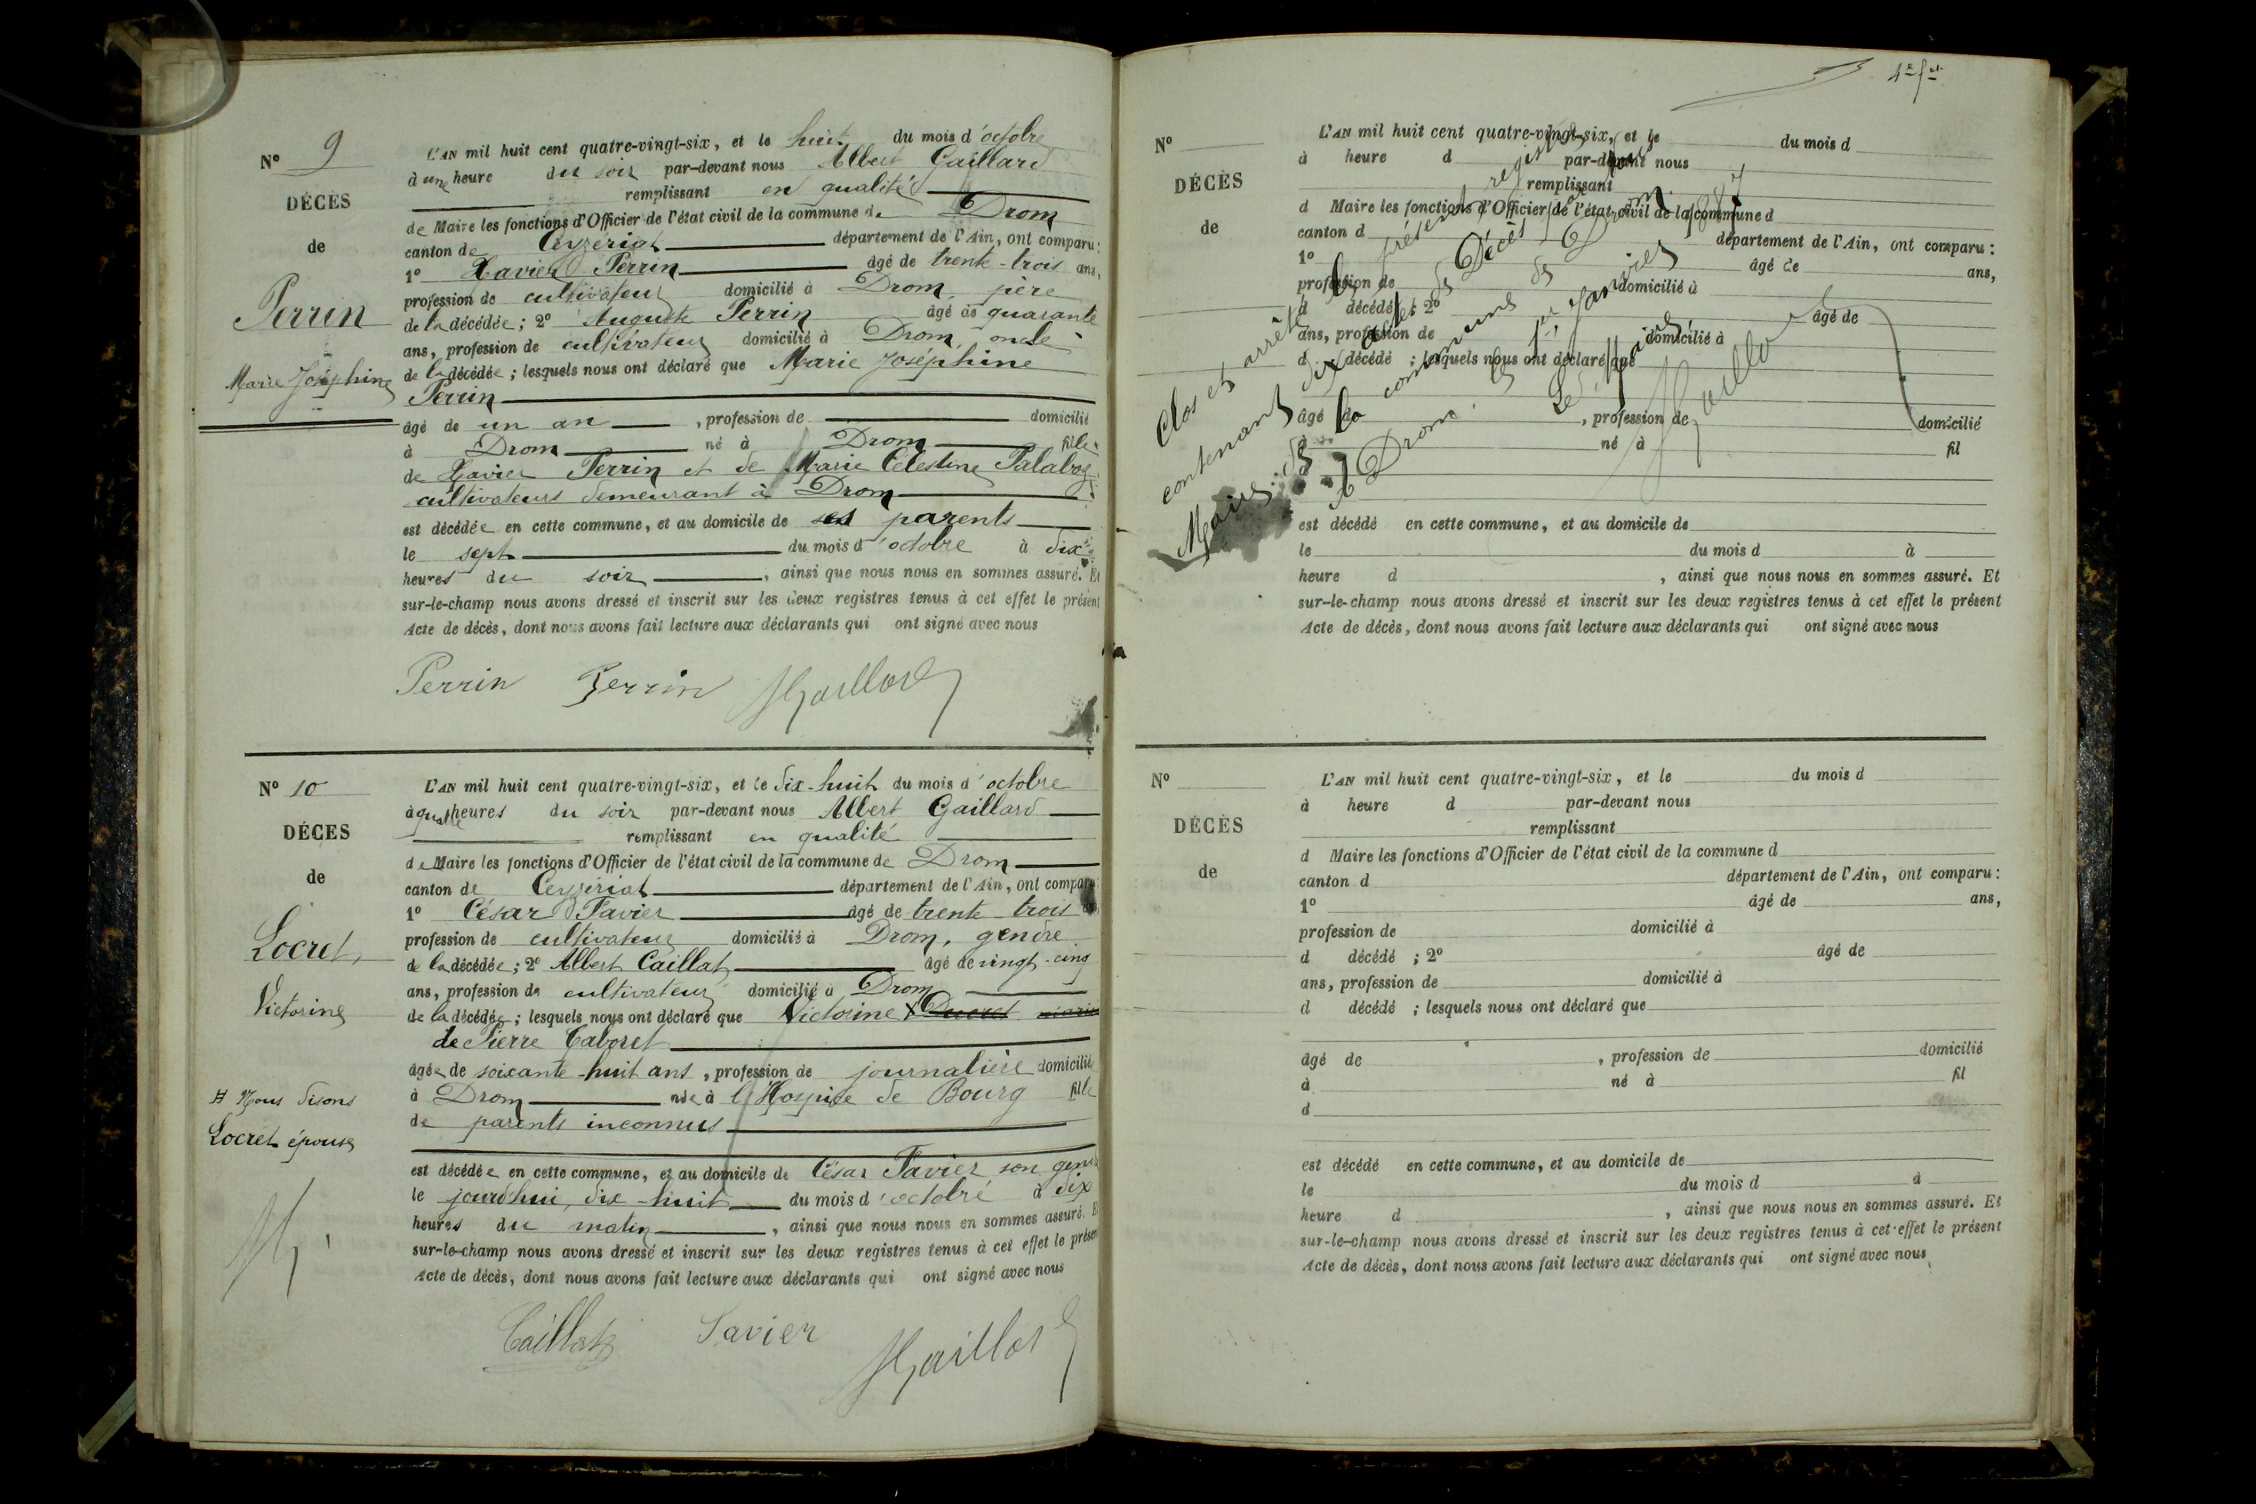 N° 9
DÉCÈS
de
Perrin
Marie Joséphine
L'AN mil huit cent quatre-vingt-six, et le huit du mois d'octobre
à une heure du soir par-devant nous Albert Gaillard
remplissant en qualité
de Maire les fonctions d'Officier de l'état civil de la commune de Drom
canton de Ceyzériat département de l'Ain, ont comparu :
1° Xavier Perrin âgé de trente-trois ans,
profession de cultivateur domicilié à Drom, père
de la décédée ; 2° Auguste Perrin âgé de quarante
ans, profession de cultivateur domicilié à Drom, oncle
de la décédée ; lesquels nous ont déclaré que Marie Joséphine
Perrin
âgé de un an , profession de domicilié
à Drom né à Drom fille
de Xavier Perrin et de Marie Célestine
cultivateurs demeurant à Drom
est décédée en cette commune, et au domicile de ses parents
le sept du mois d'octobre à dix
heures du soir , ainsi que nous nous en sommes assuré. Et
sur-le-champ nous avons dressé et inscrit sur les deux registres tenus à cet effet le présent
Acte de décès, dont nous avons fait lecture aux déclarants qui ont signé avec nous
Perrin Perrin AGaillard
N° 10
DÉCES
de
Locret,
Victorine
# Nous disons
Locret épouse
L'AN mil huit cent quatre-vingt-six, et le dix-huit du mois d'octobre
à quatre heures du soir par-devant nous Albert Gaillard
remplissant en qualité
de Maire les fonctions d'Officier de l'état civil de la commune de Drom
canton de Ceyzériat département de l'Ain, ont comparu
1° César Favier âgé de trente-trois
profession de cultivateur domicilié à Drom, gendre
de la décédée ; 2° Albert Caillat âgé de vingt-cinq
ans, profession de cultivateur domicilié à Drom
de la décédée ; lesquels nous ont déclaré que Victorine
de Pierre Taboret
âgée de soixante-huit ans , profession de journalière domicilié
à Drom née à l'Hospice de Bourg fille
de parents inconnus
est décédée en cette commune, et au domicile de César Favier son gendre
le jourd'hui, dix-huit du mois d'octobre à dix
heures du matin , ainsi que nous nous en sommes assuré. Et
sur-le-champ nous avons dressé et inscrit sur les deux registres tenus à cet effet le présent
Acte de décès, dont nous avons fait lecture aux déclarants qui ont signé avec nous
Caillat Favier AGaillard
N°
DÉCÈS
de
L'AN mil huit cent quatre-vingt-six, et le du mois d
à heure d par-devant nous
remplissant
d Maire les fonctions d'Officier de l'état civil de la commune d
canton d département de l'Ain, ont comparu :
1° âgé de ans,
profession de domicilié à
d décédé ; 2° âgé de
ans, profession de domicilié à
d décédé ; lesquels nous ont déclaré que
âgé de , profession de domicilié
à né à fil
d
est décédé en cette commune, et au domicile de
le du mois d à
heure d , ainsi que nous nous en sommes assuré. Et
sur-le-champ nous avons dressé et inscrit sur les deux registres tenus à cet effet le présent
Acte de décès, dont nous avons fait lecture aux déclarants qui ont signé avec nous
Clos et arrêté le présent registre
contenant dix actes de Décès par nous
Maire de la commune de Drom.
A Drom, le 1er Janvier 1887
Le Maire
AGaillard
N°
DÉCÈS
de
L'AN mil huit cent quatre-vingt-six, et le du mois d
à heure d par-devant nous
remplissant
d Maire les fonctions d'Officier de l'état civil de la commune d
canton d département de l'Ain, ont comparu :
1° âgé de ans,
profession de domicilié à
d décédé ; 2° âgé de
ans, profession de domicilié à
d décédé ; lesquels nous ont déclaré que
âgé de , profession de domicilié
à né à fil
d
est décédé en cette commune, et au domicile de
le du mois d à
heure d , ainsi que nous nous en sommes assuré. Et
sur-le-champ nous avons dressé et inscrit sur les deux registres tenus à cet effet le présent
Acte de décès, dont nous avons fait lecture aux déclarants qui ont signé avec nous